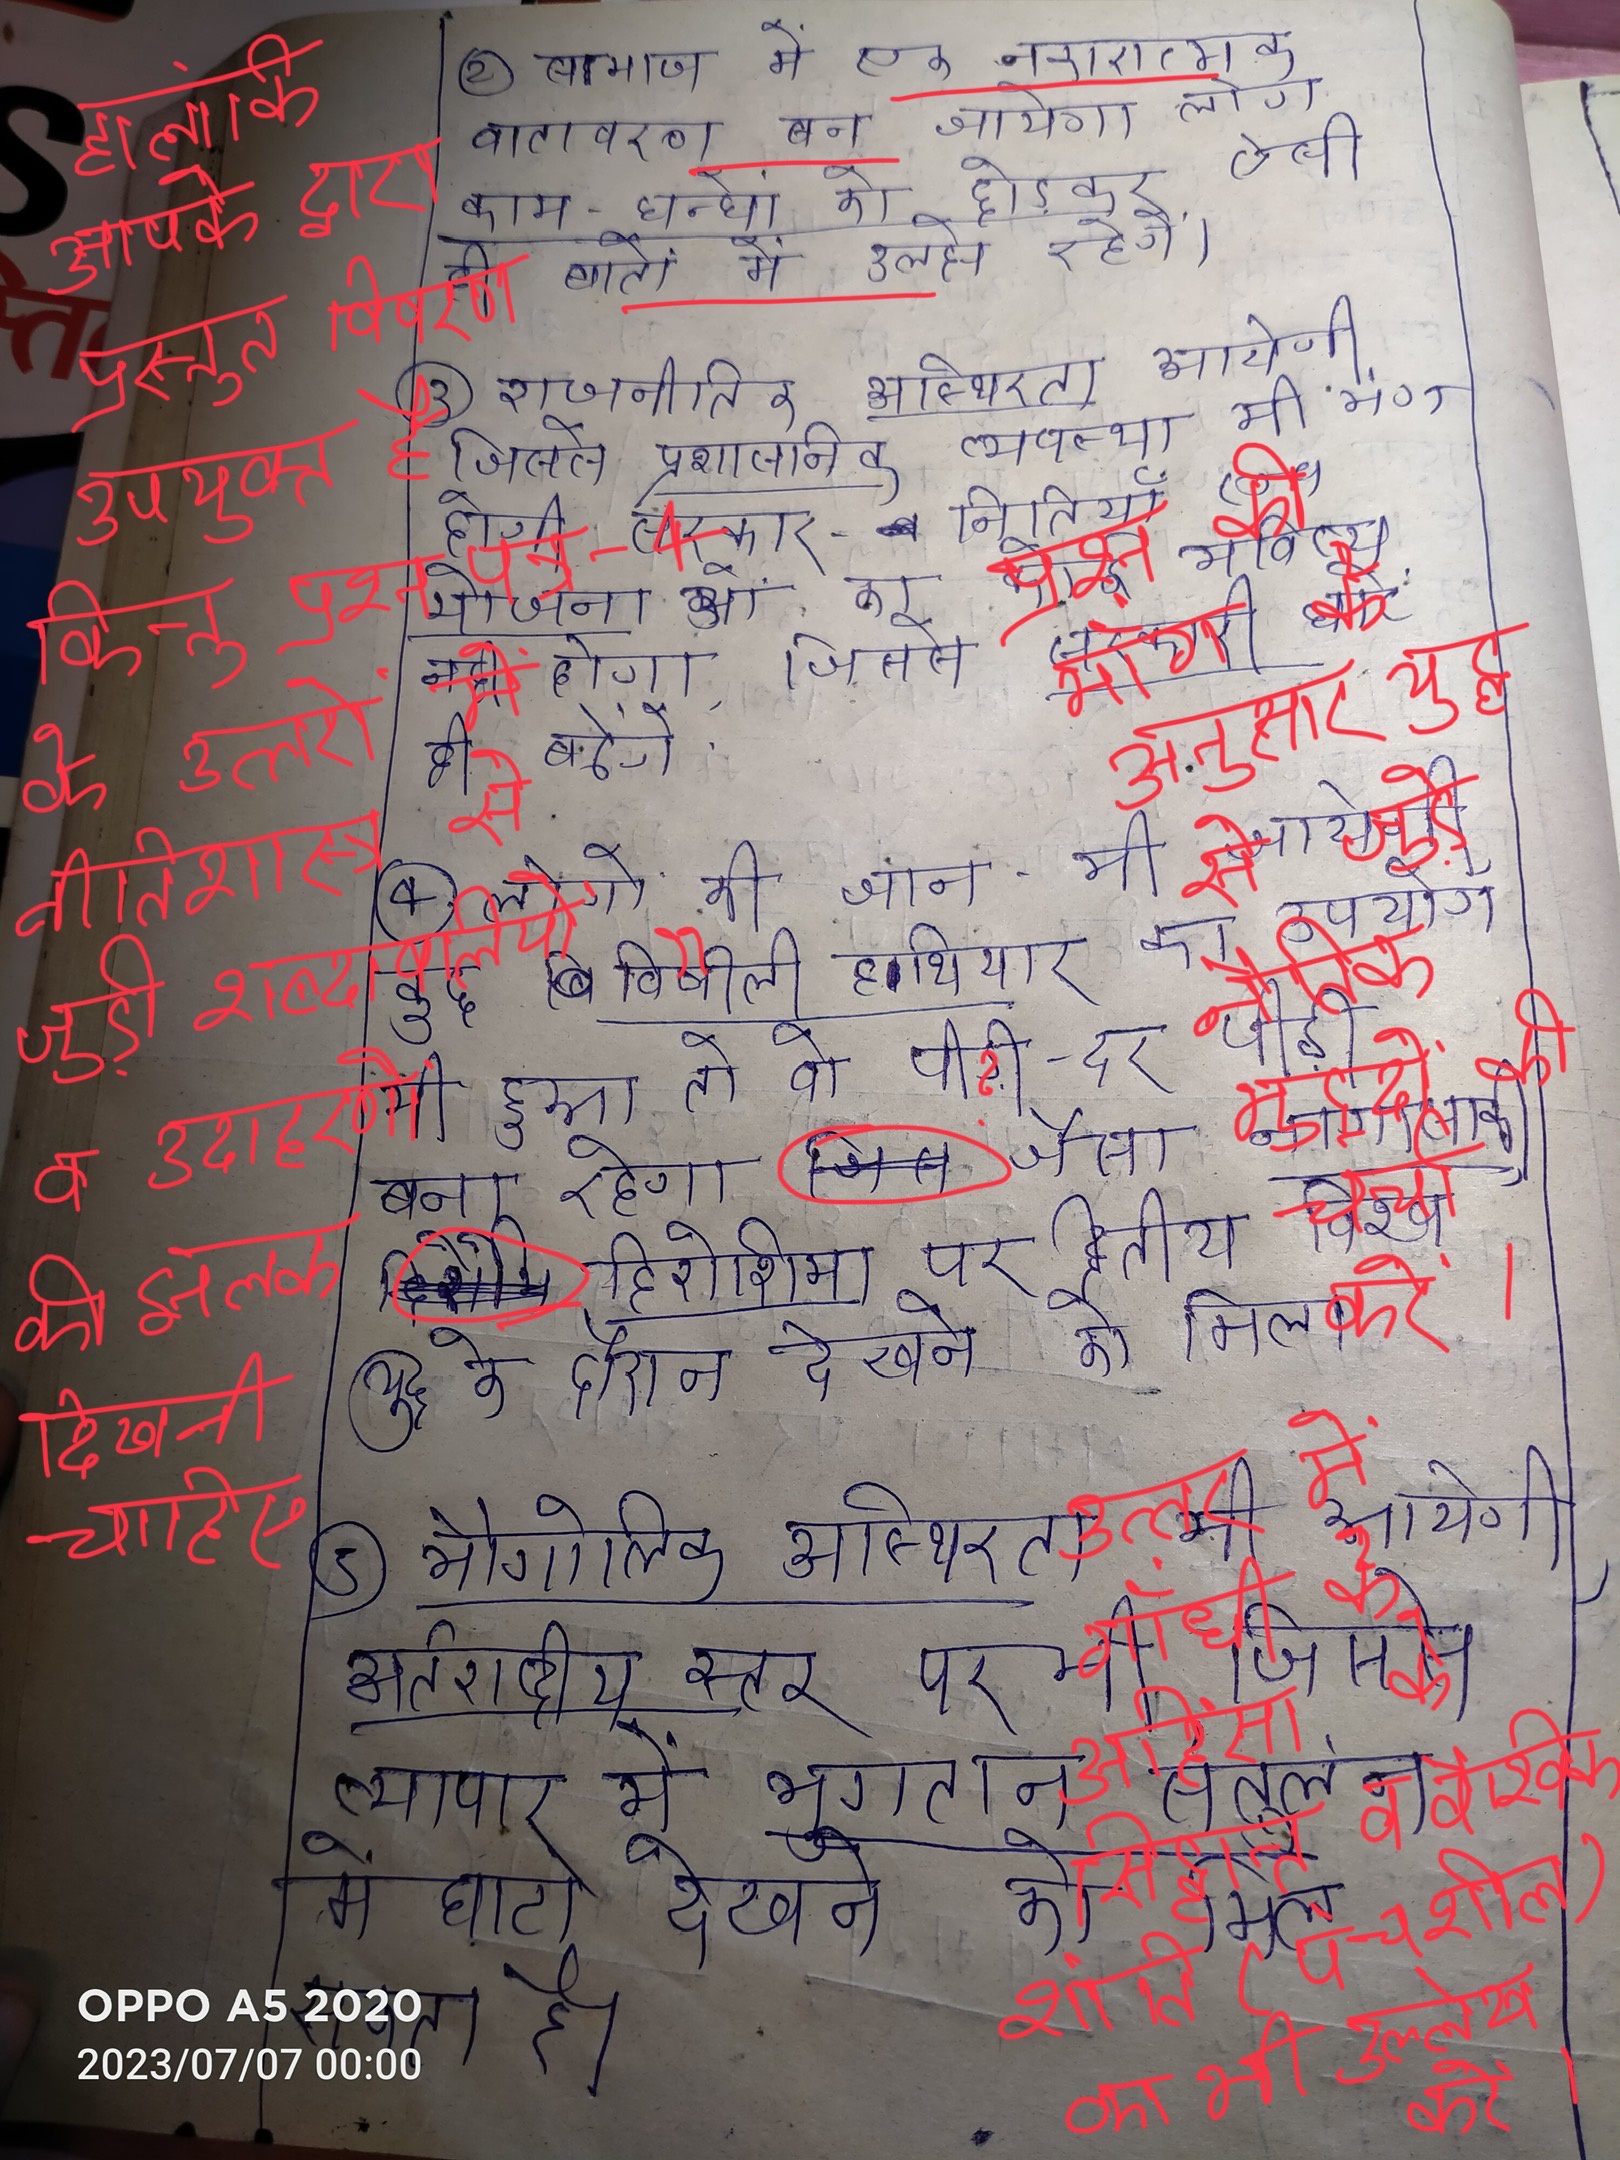 ② समाज में एक नकारात्मक
वातावरण बन जायेगा लोग
काम-धन्धों को छोड़कर ऐसी
ही बातों में उलझे रहेगें।
③ राजनीतिक अस्थिरता आयेगी
जिससे प्रशासनिक व्यवस्था भी भंग
होगी सरकार - नितियाँ
योजनाओं का कोई भविष्य
नहीं होगा, जिससे सरकारी
ही बढेंगे.
④ लोगो की जान - भी जायेगी
युद्ध विषैली हाथियार का उपयोग
भी हुआ तो वो पीढ़ी-दर पीढ़ी
बना रहेगा जैसा नागासाकी,
हिरोशिमा पर द्वितीय विश्व
युद्ध के दौरान देखने को मिला
⑤ भौगोलिक अस्थिरता भी आयेगी,
अर्तराष्ट्रीय स्तर पर भी जिससे
व्यापार में भुगतान संतुलन
में घाटा देखने को मिल
सकता है।
हालांकि
आपके द्वारा
प्रस्तुत विवरण
उपयुक्त है
किन्तु प्रश्न पत्र-4
के उत्तरों में
नीतिशास्त्र से
जुड़ी शब्दावलियों
व उदाहरणों
की झलक
दिखनी
चाहिए
प्रश्न की
मांग के
अनुसार युद्ध
से जुड़े
नैतिक
मुद्दों की
चर्चा
करें ।
उत्तर में
गाँधी के
अहिंसा के
सिद्धान्त व वैश्विक
शांति (पंचशील)
का भी उल्लेख
करें ।
OPPO A5 2020
2023/07/07 00:00